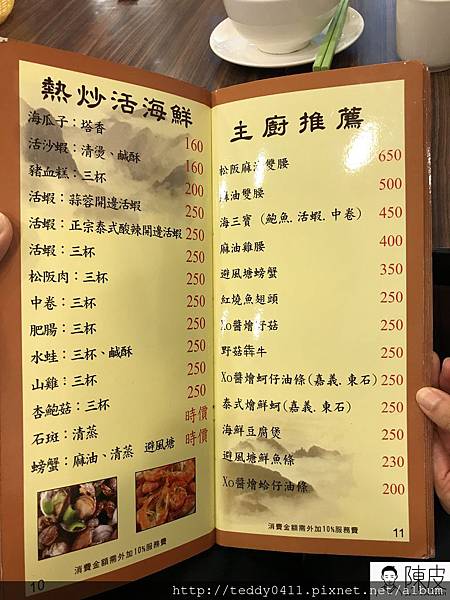 熱炒活海鮮
海瓜子：塔香 160
活沙蝦：清燙、鹹酥 160
豬血糕：三杯 200
活蝦：蒜蓉開邊活蝦 250
活蝦：正宗泰式酸辣開邊活蝦 250
活蝦：三杯 250
松阪肉：三杯 250
中卷：三杯 250
肥腸：三杯 250
水蛙：三杯、鹹酥 250
山雞：三杯 250
杏鮑菇：三杯 250
石斑：清蒸 時價
螃蟹：麻油、清蒸 避風塘 時價
消費金額需外加10%服務費
10
主廚推薦
松阪麻油雙腰 650
麻油雙腰 500
海三寶 (鮑魚.活蝦.中卷) 450
麻油雞腰 400
避風塘螃蟹 350
紅燒魚翅頭 250
Xo醬燴菇 250
野菇犇牛 250
Xo醬燴蚵仔油條(嘉義.東石) 250
泰式燴鮮蚵(嘉義.東石) 250
海鮮豆腐煲 250
避風塘鮮魚條 230
Xo醬燴蛤仔油條 200
消費金額需外加10%服務費
11
陳皮
http://teddy0411.pixnet.net/album